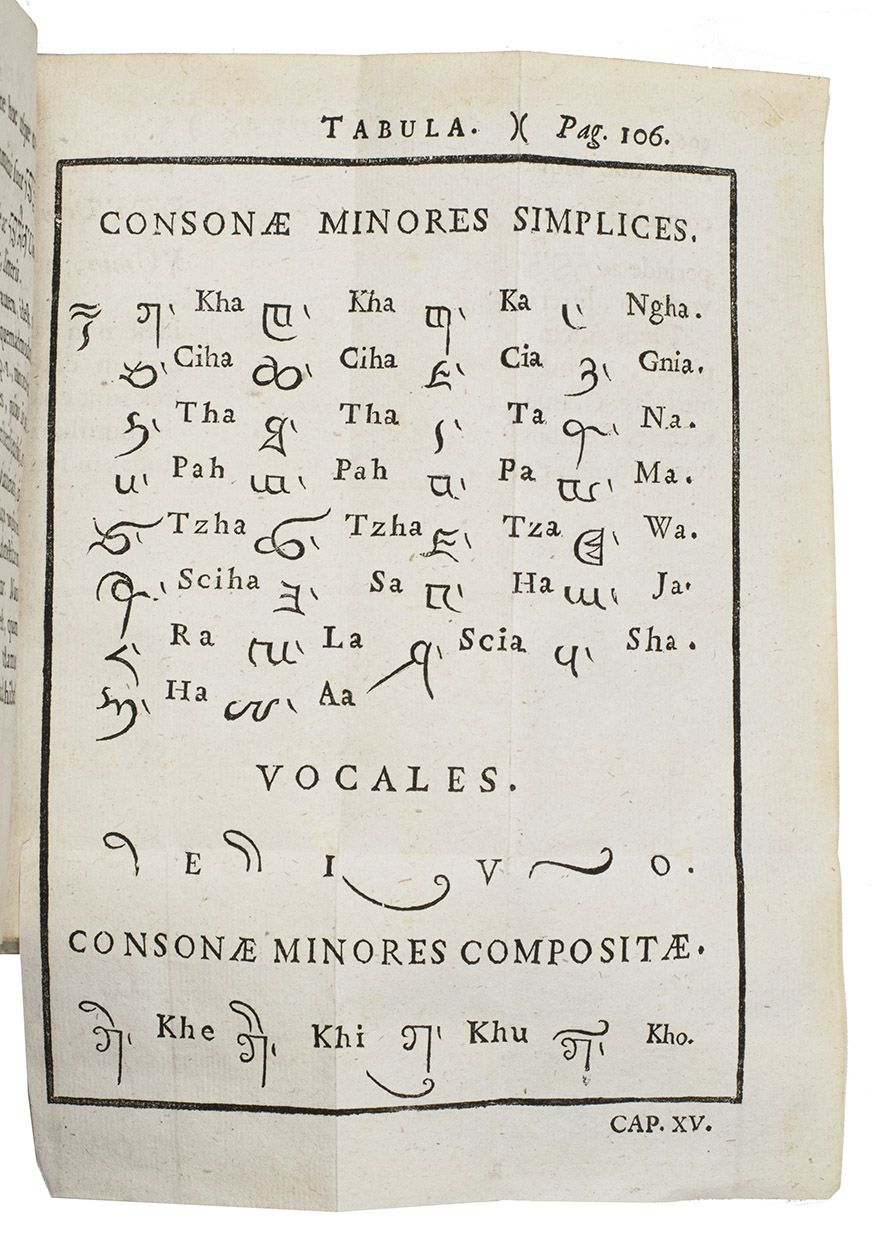 TABULA. )( Pag. 106.
CONSONÆ MINORES SIMPLICES.
༄ ཀ་ Kha ཁ་ Kha ག་ Ka ང་ Ngha.
ཅ་ Ciha ཆ་ Ciha ཇ་ Cia ཉ་ Gnia.
ཏ་ Tha ཐ་ Tha ད་ Ta ན་ Na.
པ་ Pah ཕ་ Pah བ་ Pa མ་ Ma.
ཙ་ Tzha ཚ་ Tzha ཛ་ Tza ཝ་ Wa.
ཞ་ Sciha ཟ་ Sa འ་ Ha ཡ་ Ja.
ར་ Ra ལ་ La ཤ་ Scia ས་ Sha.
ཧ་ Ha ཨ་ Aa
VOCALES.
ེ E ི I ུ V ོ O.
CONSONÆ MINORES COMPOSITÆ.
ཀེ་ Khe ཀི་ Khi ཀུ་ Khu ཀོ་ Kho.
CAP. XV.